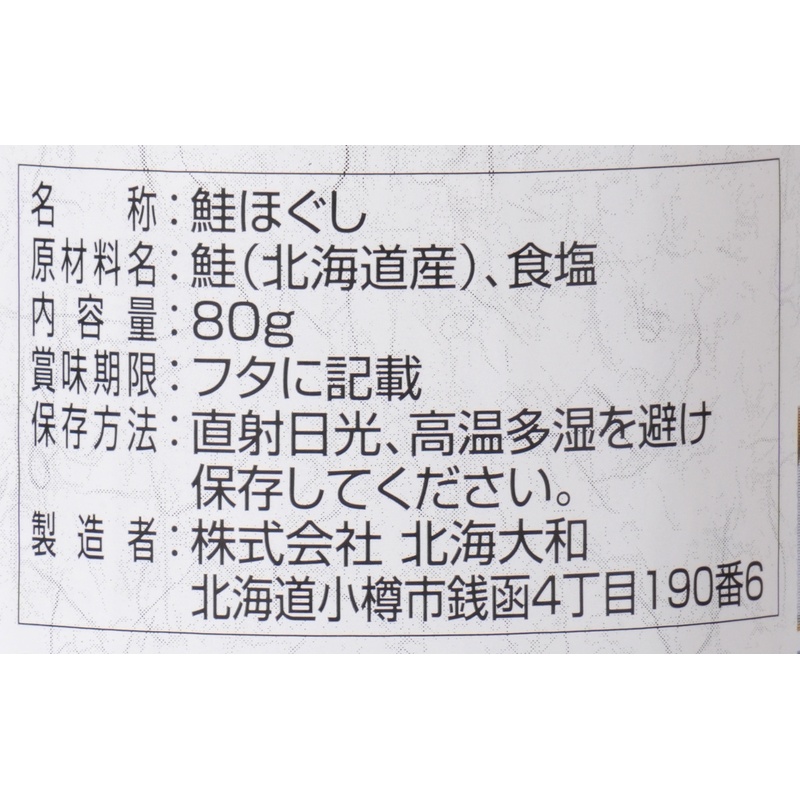 名称：鮭ほぐし
原材料名：鮭（北海道産）、食塩
内容量：80g
賞味期限：フタに記載
保存方法：直射日光、高温多湿を避け
保存してください。
製造者：株式会社 北海大和
北海道小樽市銭函4丁目190番6